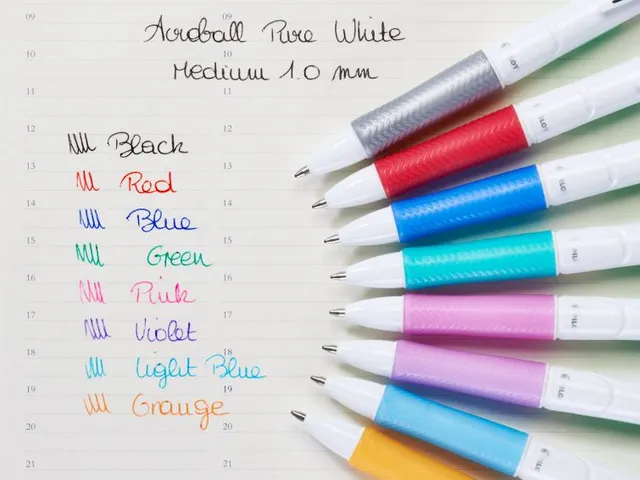 09 09
Acroball Pure White
10 10
Medium 1.0 mm
11 11
12 12
Black
13 13
Red
14 14
Blue
15 15
Green
16 16
Pink
17 17
Violet
18 18
Light Blue
19 19
Orange
20 20
21 21
LOT
ILOT